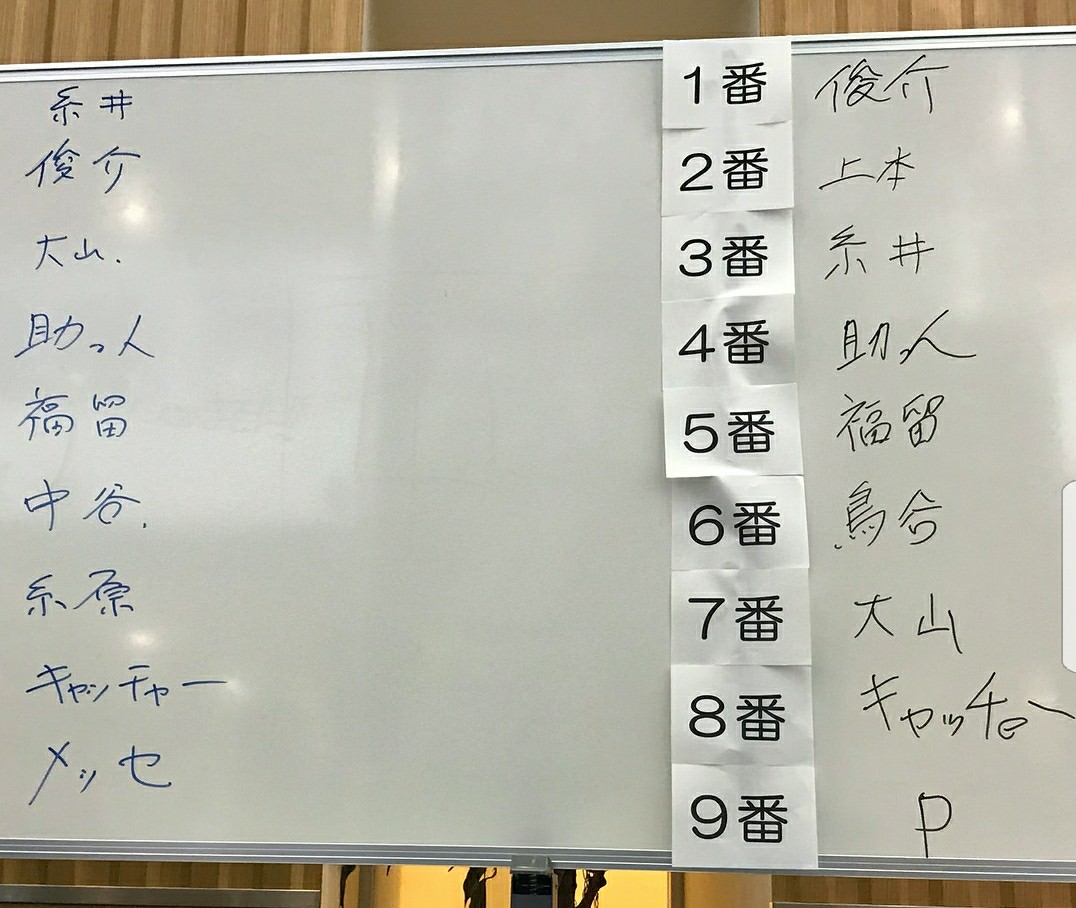 糸井 1番 俊介
俊介 2番 上本
大山. 3番 糸井
助っ人 4番 助っ人
福留 5番 福留
中谷. 6番 鳥谷
糸原 7番 大山
キャッチャー 8番 キャッチャー
メッセ 9番 P